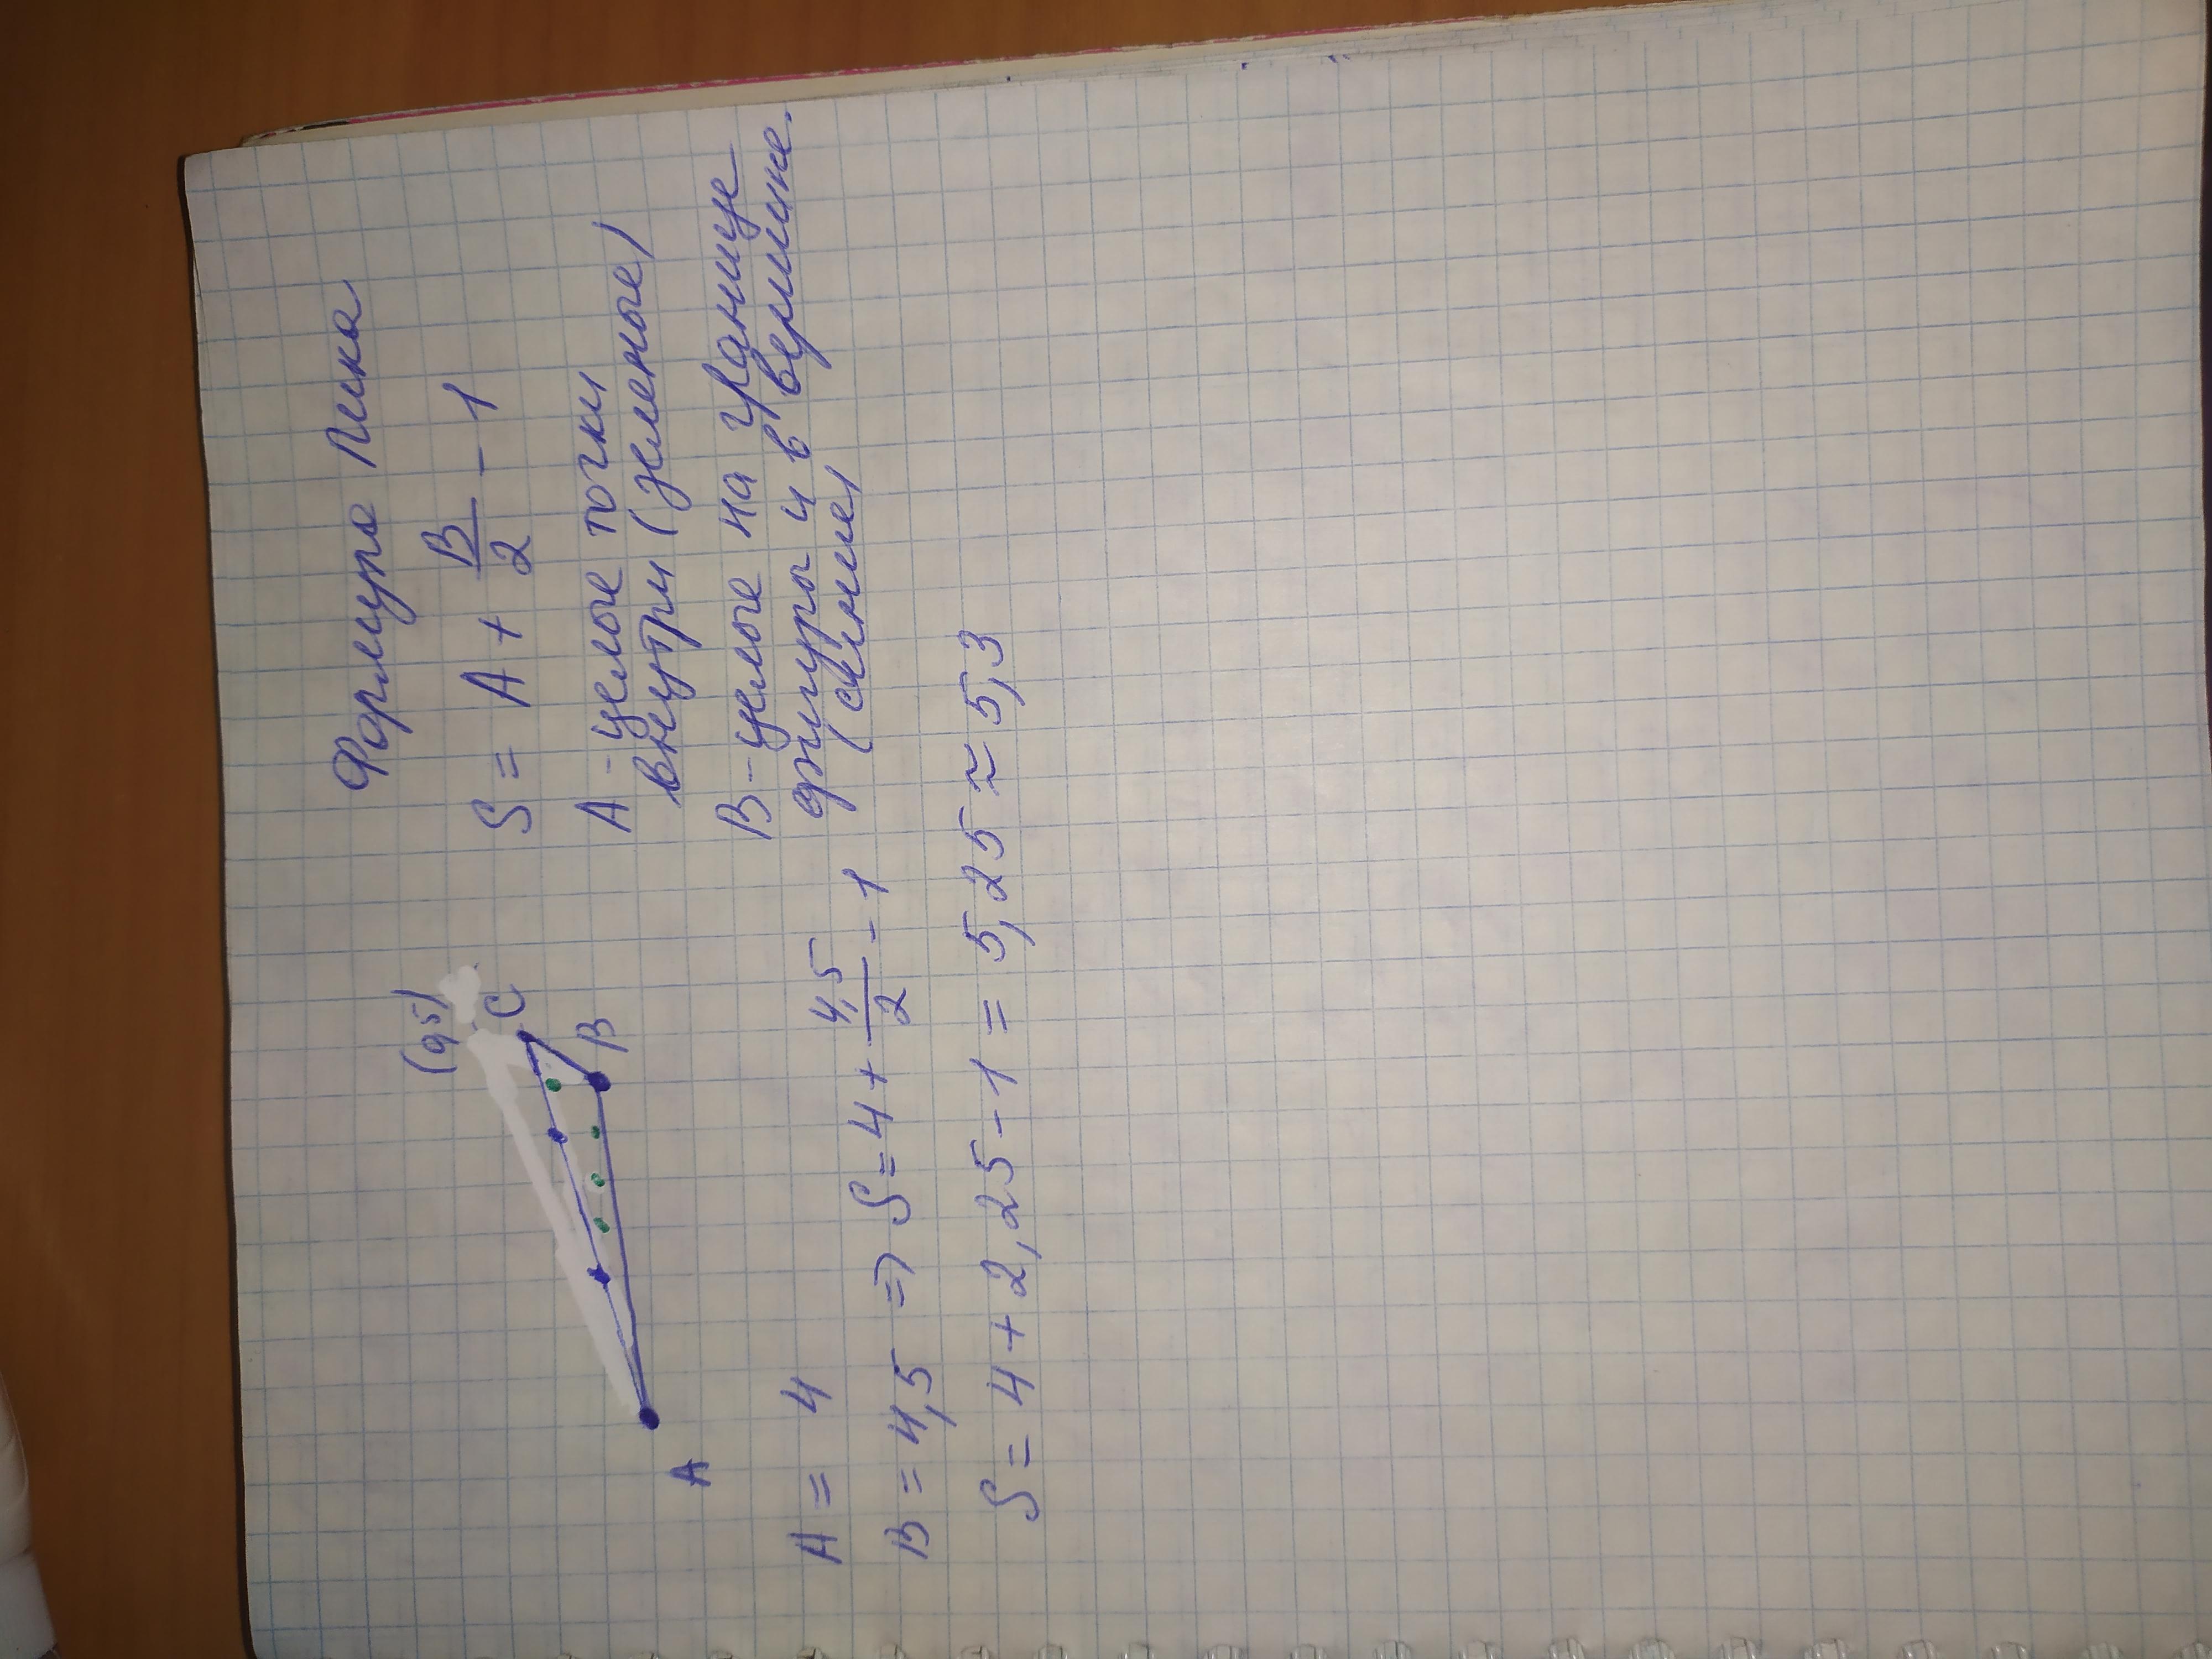 Формула Пика
S = A + B/2 - 1
A - целые точки
внутри (зеленые)
B - целые на границе
фигуры и в вершине.
(синие)
(0,5)
C
B
A
A = 4
B = 4,5 => S = 4 + 4,5/2 - 1
S = 4 + 2,25 - 1 = 5,25 ≈ 5,3